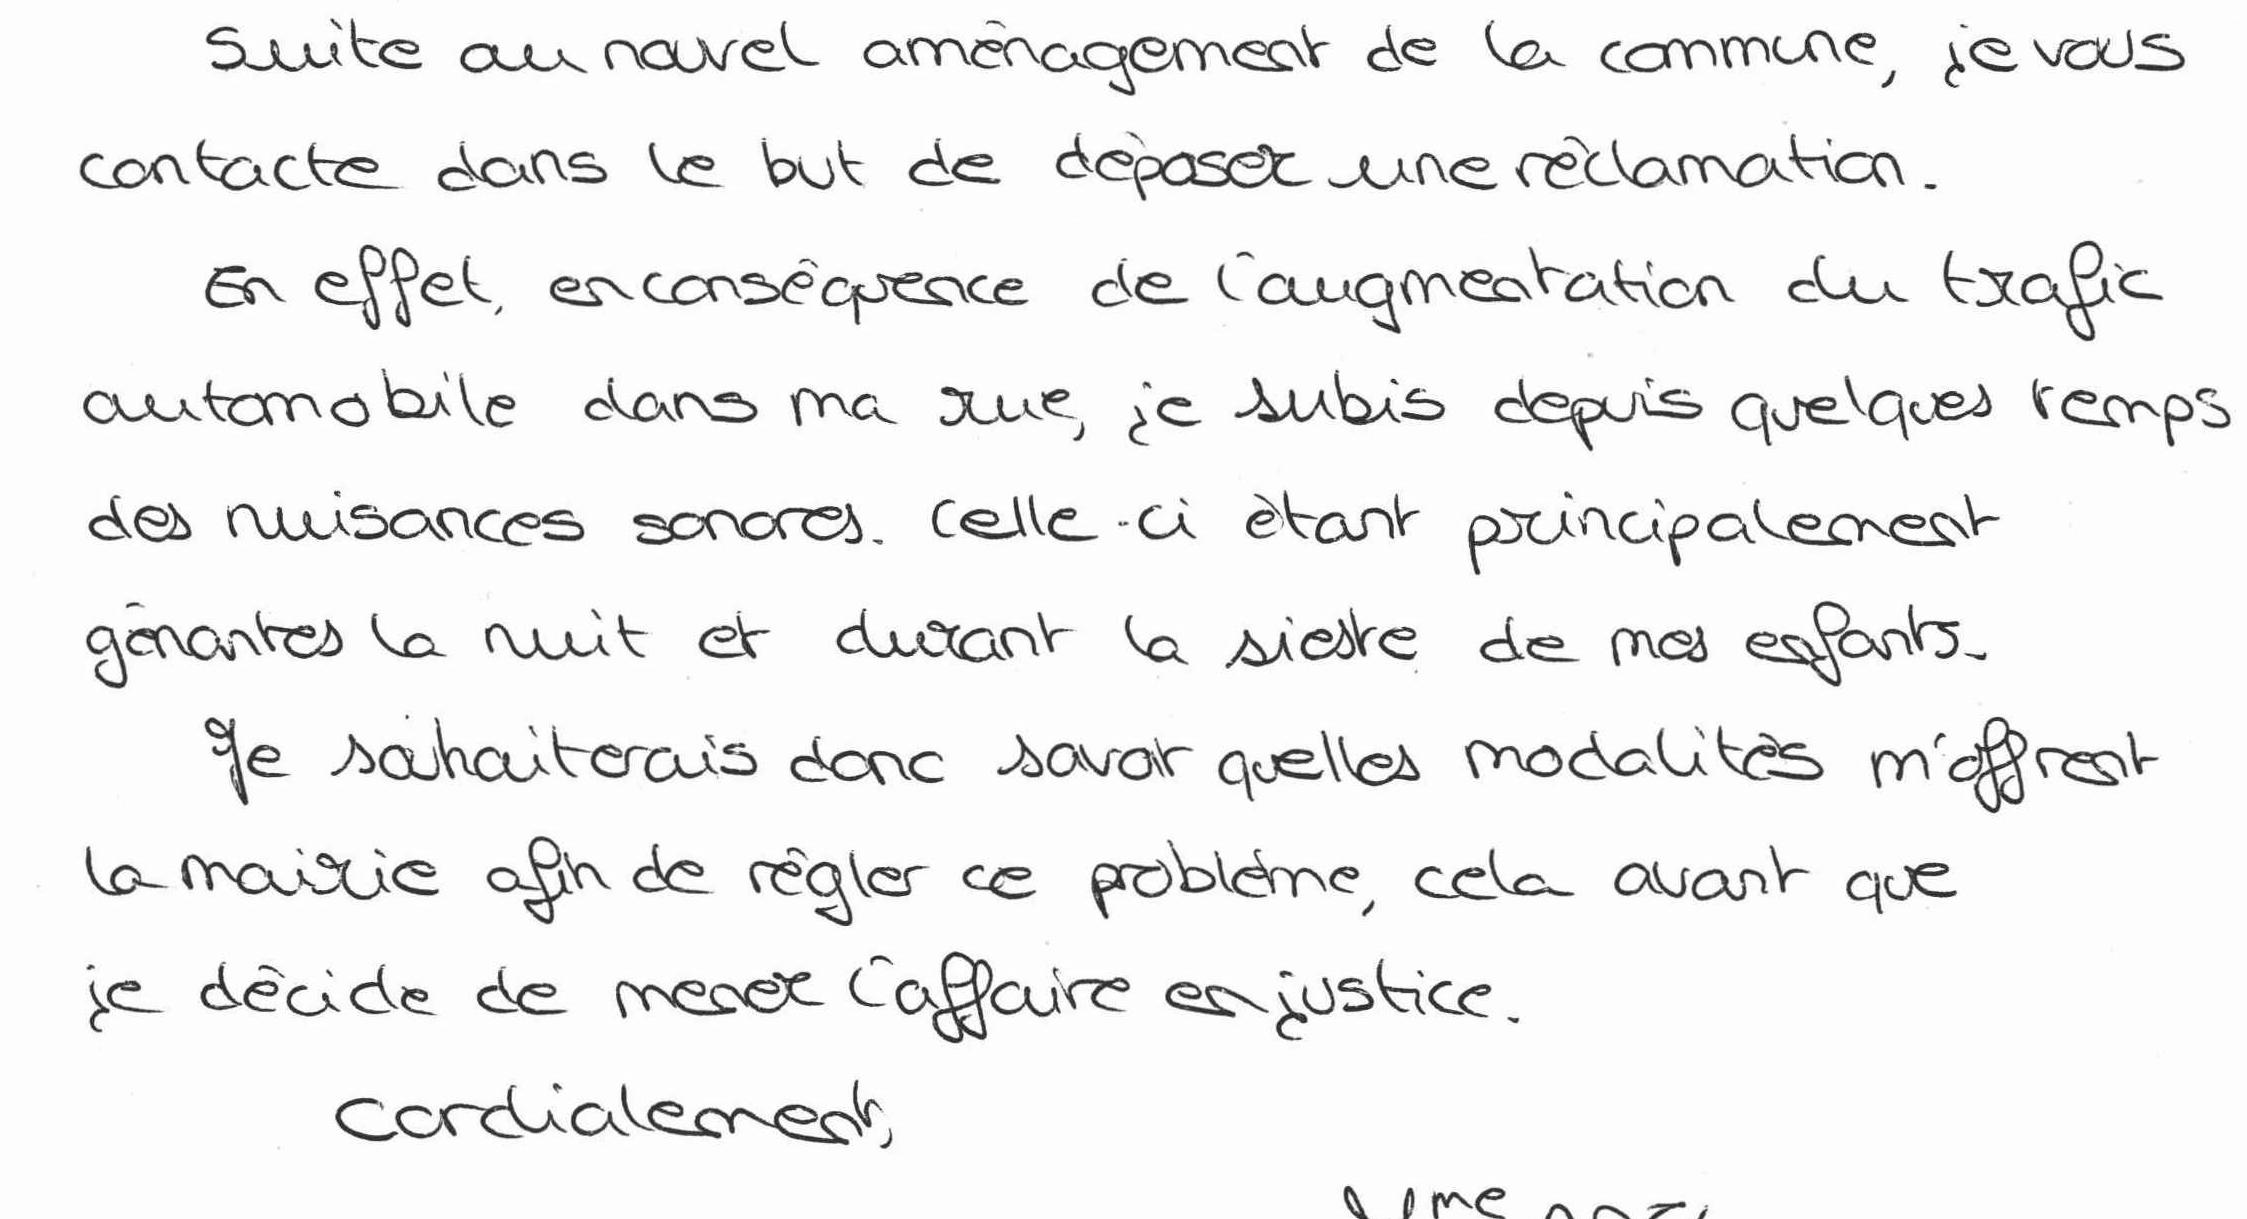 Suite au nouvel aménagement de la commune, je vous
contacte dans le but de déposer une réclamation.
En effet, en conséquence de l'augmentation du trafic
automobile dans ma rue, je subis depuis quelques temps
des nuisances sonores. Celle-ci étant principalement
gênantes la nuit et durant la sieste de mes enfants.
Je souhaiterais donc savoir quelles modalités m'offrent
la mairie afin de régler ce problème, cela avant que
je décide de mener l'affaire en justice.
Cordialement,
Mme